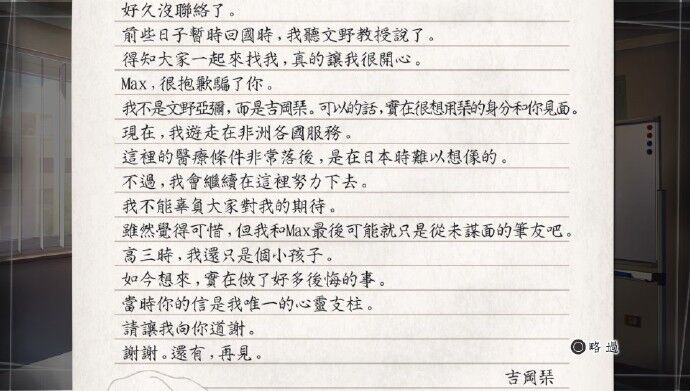 好久沒聯絡了。
前些日子暫時回國時，我聽文野教授說了。
得知大家一起來找我，真的讓我很開心。
Max，很抱歉騙了你。
我不是文野亞彌，而是吉岡琹。可以的話，實在很想用琹的身分和你見面。
現在，我遊走在非洲各國服務。
這裡的醫療條件非常落後，是在日本時難以想像的。
不過，我會繼續在這裡努力下去。
我不能辜負大家對我的期待。
雖然覺得可惜，但我和Max最後可能就只是從未謀面的筆友吧。
高三時，我還只是個小孩子。
如今想來，實在做了好多後悔的事。
當時你的信是我唯一的心靈支柱。
請讓我向你道謝。
謝謝。還有，再見。
吉岡琹
略過